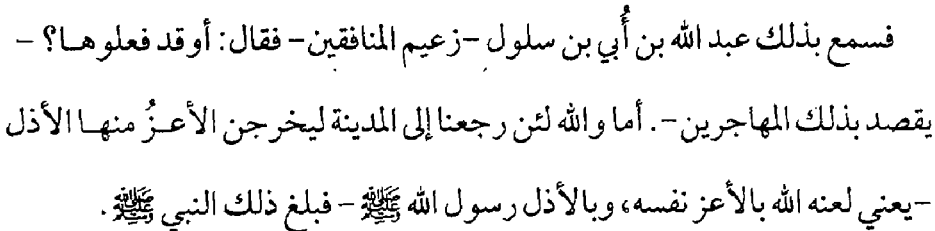 فسمع بذلك عبد الله بن أُبي بن سلول –زعيم المنافقين– فقال: أوقد فعلوها؟ –
يقصد بذلك المهاجرين–. أما والله لئن رجعنا إلى المدينة ليخرجن الأعزُ منها الأذل
–يعني لعنه الله بالأعز نفسه، وبالأذل رسول الله ﷺ – فبلغ ذلك النبي ﷺ.